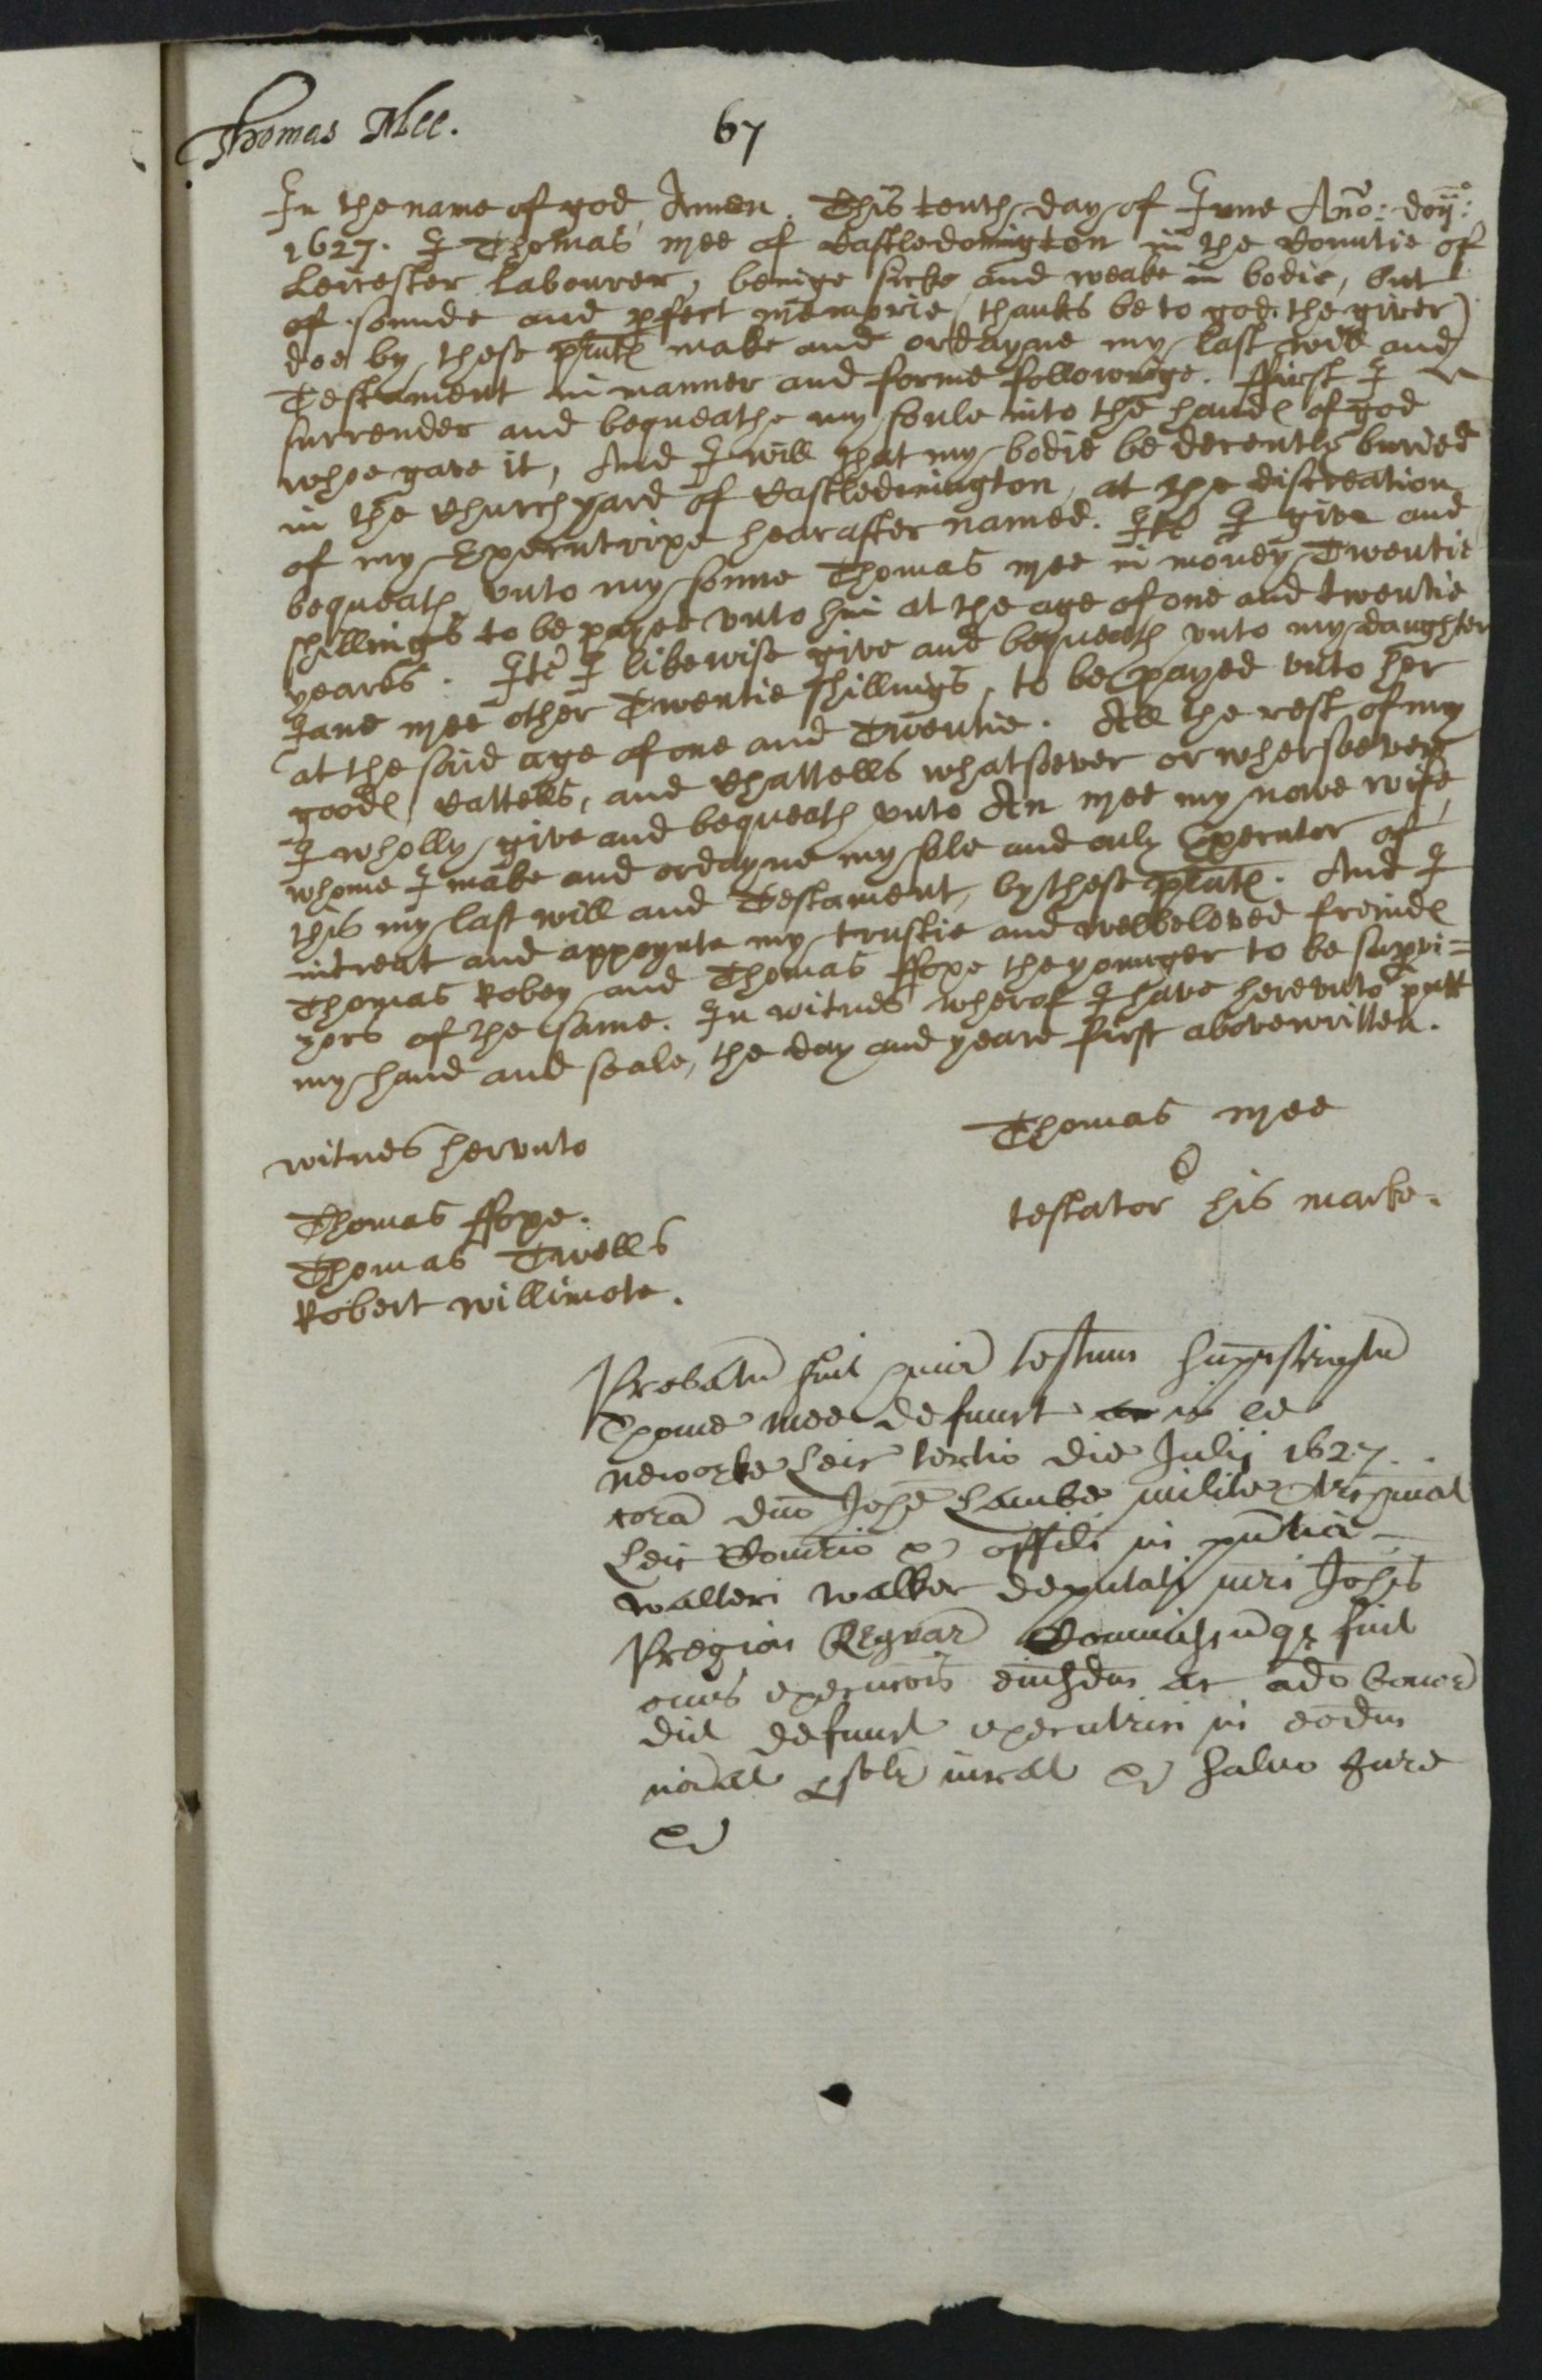 Thomas Mee.
67
In the name of god Amen. This tenth day of June Anno: doni:
1627. I Thomas Mee of Castledonington in the Countie of
Leicester Labourer, beinge sicke and weake in bodie, but
of sounde and pfect memorie (thanks be to god the giver)
doe by these pnts make and ordayne my last will and
Testament in manner and forme followinge. ffirst I
surrender and bequeathe my soule into the hands of god
whoe gave it, And I will that my bodie be decently buried
in the Churchyard of Castledonington, at the discreation
of my Executrixe hearafter named. Ite I give and
bequeath unto my sonne Thomas Mee in money Twentie
shillings to be payed unto him at the age of one and twentie
yeares. Ite I likewise give and bequeath unto my daughter
Jane Mee other Twentie shillings, to be payed unto her
at the said age of one and Twentie. All the rest of my
goods, Cattells, and Chattells whatsoever or whersoever
I wholly give and bequeath unto An Mee my nowe wife,
whome I make and ordayne my sole and only Executor of
this my last will and Testament, by these pnts. And I
intreat and appoynte my trustie and welbeloved freinds
Thomas Robey and Thomas ffoxe the younger to be supvi=
zors of the same. In witnes wherof I have hereunto putt
my hand and seale, the day and yeare first abovewritten.
Thomas Mee
testator his marke.
witnes hervnto
Thomas ffoxe.
Thomas Twells
Robert Willimote.
Probatu fuit testum suprascriptu
Thome Mee defunct
Newarke Leic tertio die Julij 1627.
cora dno Johe Lambe milite
Leic Comrio & offili in pntia
Walteri Walker deputati mri Johis
Pregion Regrar Commissuqz fuit
onus execucois eiusdem ac ado bonor
dict defunct executrici in eodm
noiat jurat &c salvo Jure
&c